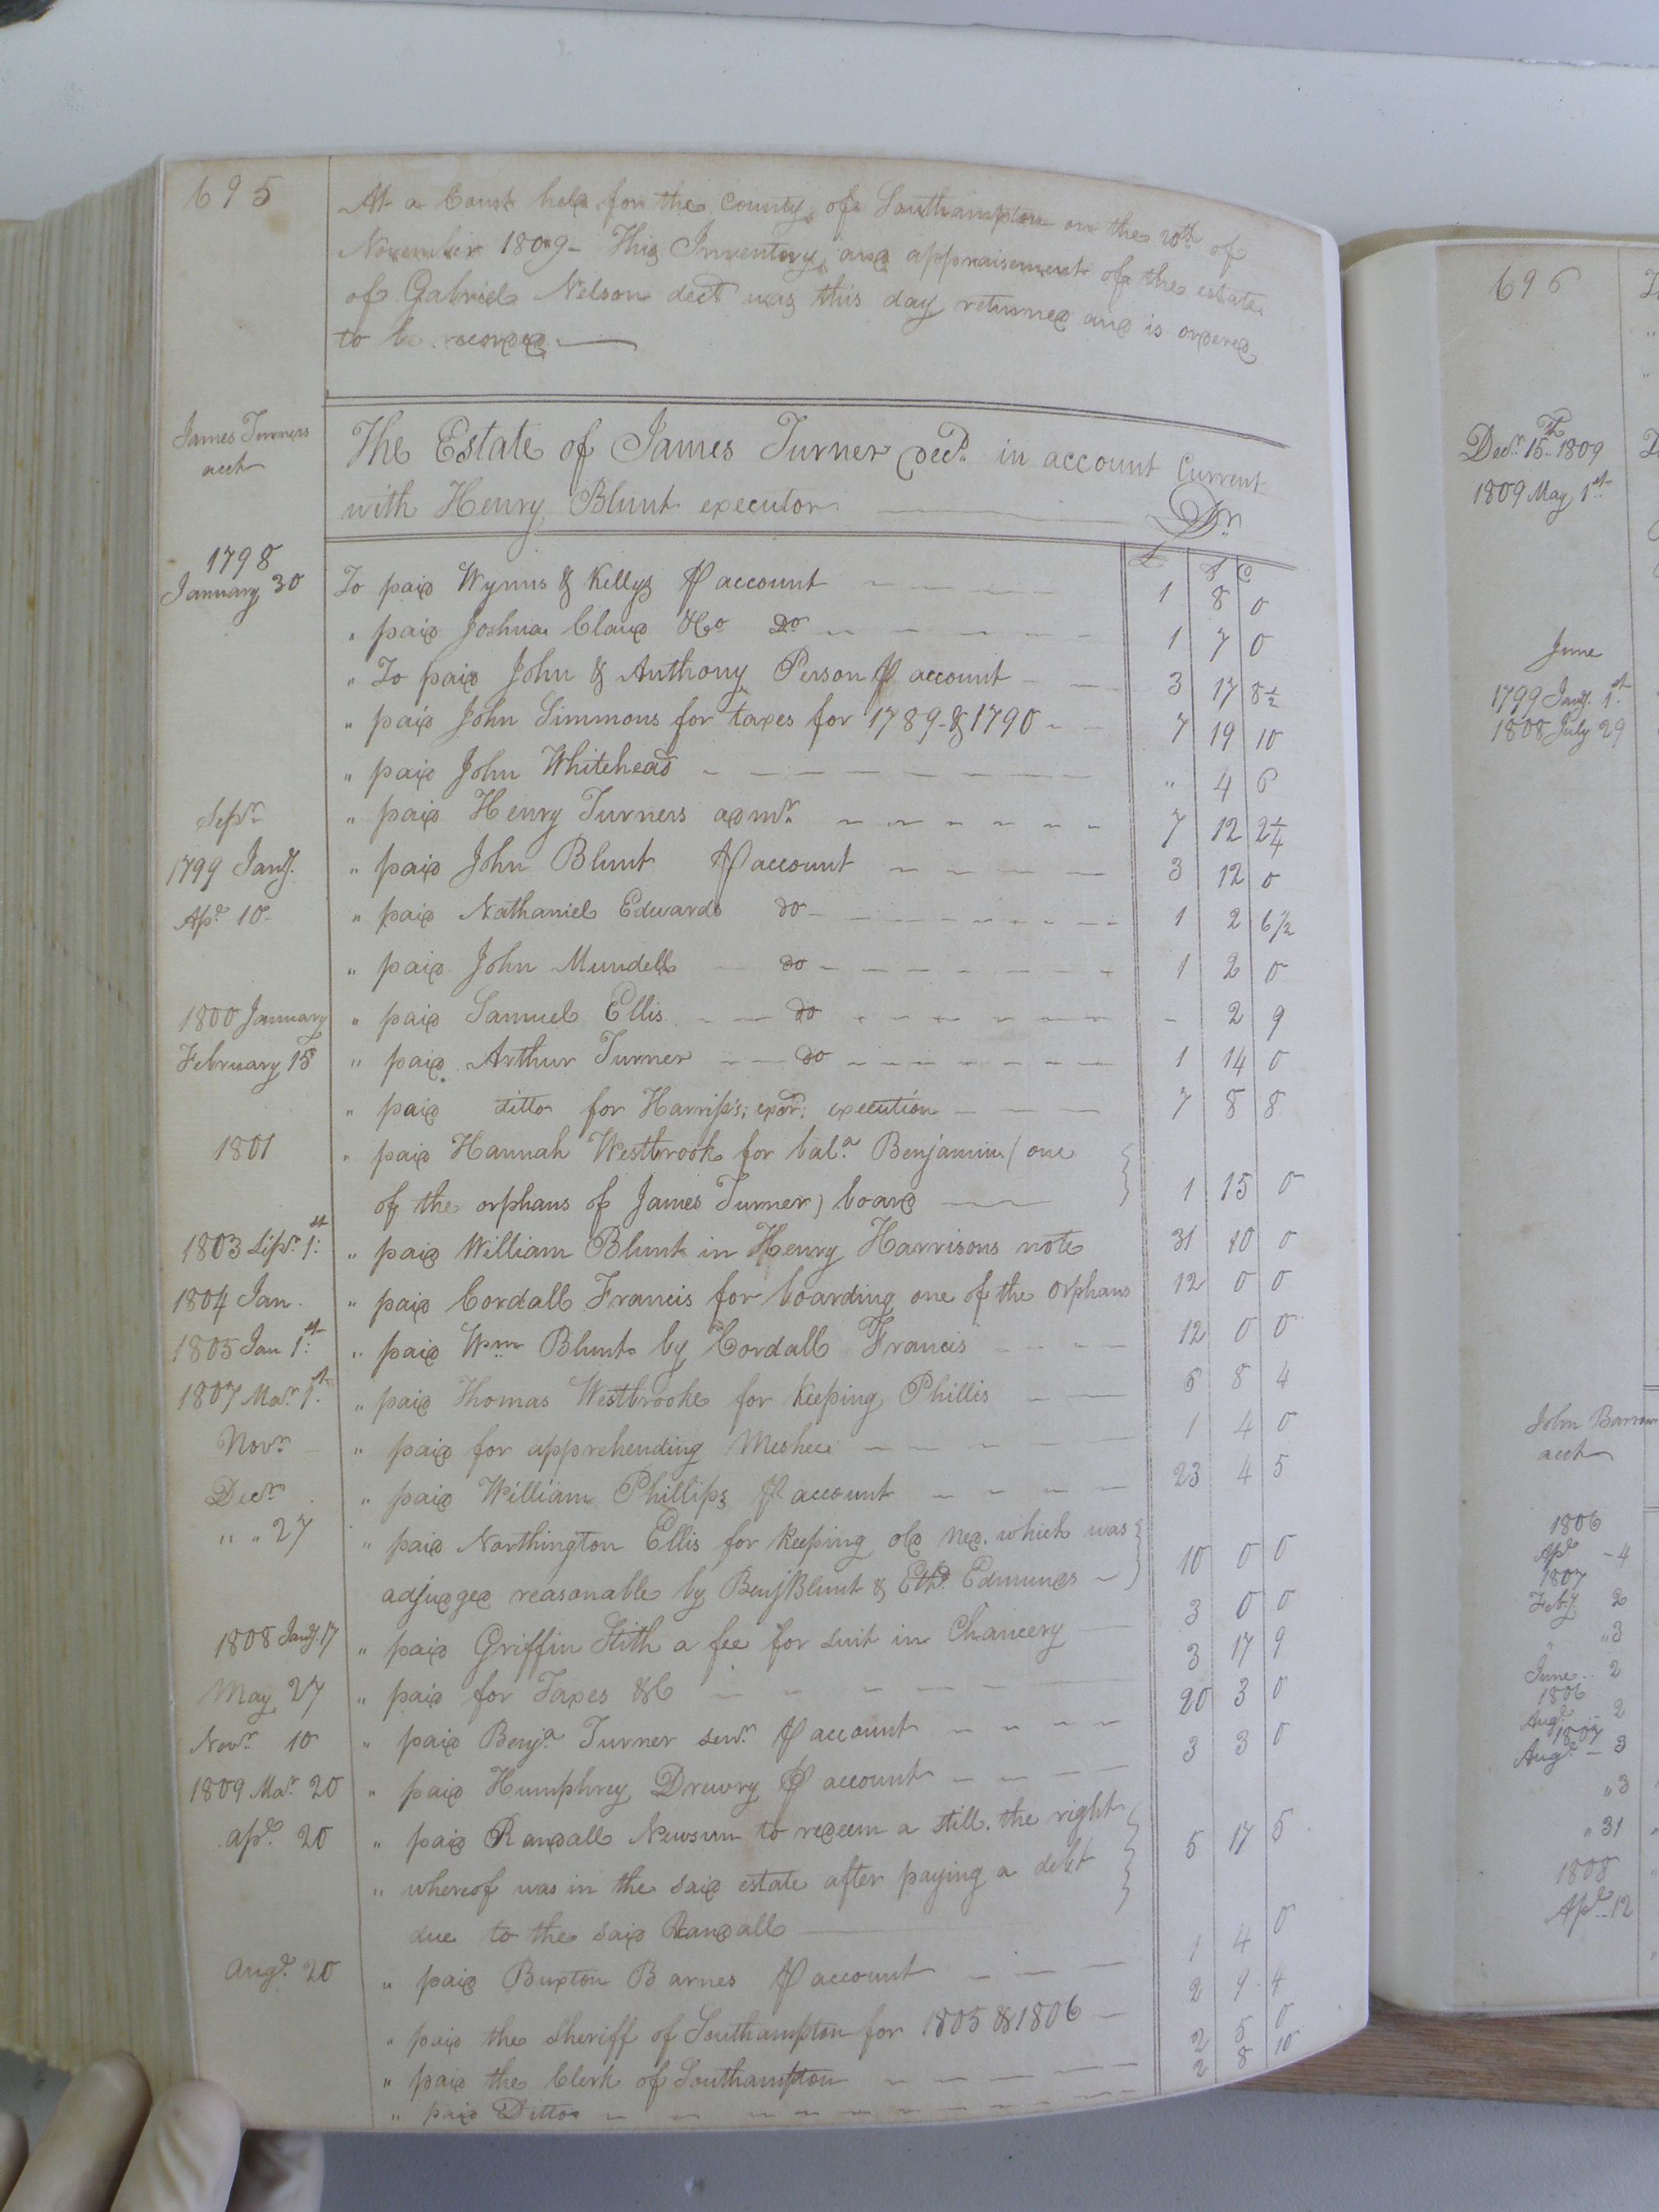 695
At a Court held for the County of Southampton on the 20th of
November 1809 - This Inventory and appraisement of the estate
of Gabriel Nelson decd was this day returned and is ordered
to be recorded
James Turners
acct
The Estate of James Turner decd. in account Current
with Henry Blunt executor Dr.
£ S D
1798
January 30 To paid Wynns & Kellys ⅌ account 1 8 0
" paid Joshua Claud &Co Do 1 7 0
" To paid John & Anthony Person ⅌ account 3 17 8½
" paid John Simmons for taxes for 1789 & 1790 7 19 10
" paid John Whitehead " 4 6
Sepr " paid Henry Turners admr. 7 12 2¼
1799 Jany. " paid John Blunt ⅌ account 3 12 0
Apl 10 " paid Nathaniel Edwards do 1 2 6½
" paid John Mundell do 1 2 0
1800 January " paid Samuel Ellis do - 2 9
February 15 " paid Arthur Turner do 1 14 0
" paid ditto for Harriss's; exor; execution 7 8 8
1801 " paid Hannah Westbrook for bala. Benjamin (one
of the orphans of James Turner) board 1 15 0
1803 Sepr. 1st " paid William Blunt in Henry Harrisons note 31 10 0
1804 Jan. " paid Cordall Francis for boarding one of the orphans 12 0 0
1805 Jan 1st " paid Wm Blunt by Cordall Francis 12 0 0
1807 Mar. 1st " paid Thomas Westbrooke for keeping Phillis 6 8 4
Novr. " paid for apprehending Meshec 1 4 0
Decr. " paid William Phillips ⅌ account 23 4 5
" " 27 " paid Northington Ellis for keeping old Ned. which was
adjudged reasonable by Benj Blunt & Ethd. Edmunds 10 0 0
1808 Jany. 17 " paid Griffin Stith a fee for suit in Chancery 3 0 0
May 27 " paid for Taxes &C 3 17 9
Novr. 10 " paid Benja. Turner senr. ⅌ account 20 3 0
1809 Mar. 20 " paid Humphrey Drewry ⅌ account 3 3 0
apl. 20 " paid Randall Newsum to redeem a still. the right
" whereof was in the said estate after paying a debt
due to the said Randall 5 17 5
augt. 20 " paid Buxton Barnes ⅌ account 1 4 0
" paid the Sheriff of Southampton for 1805 & 1806 2 9 4
" paid the Clerk of Southampton 2 5 0
" paid Ditto 2 8 10
696
Decr. 15th 1809
1809 May 1st
June
1799 Jany. 1st
1808 July 29
John Barrow
acct
1806
Apl - 4
1807
Feby 2
" " 3
June 2
1806
Augt 2
1807
Augt - 3
" 3
" 31
1808
Apl 12